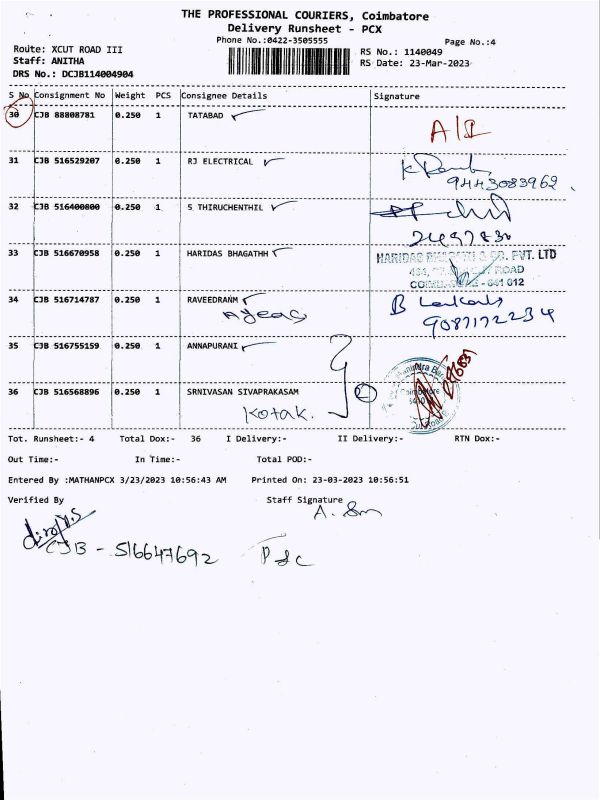 THE PROFESSIONAL COURIERS, Coimbatore
Delivery Runsheet - PCX
Phone No.:0422-3505555
Page No.:4
Route: XCUT ROAD III
Staff: ANITHA
DRS No.: DCJB114004904
RS No.: 1140049
RS Date: 23-Mar-2023
S No Consignment No Weight PCS Consignee Details Signature
30 CJB 88808781 0.250 1 TATABAD
31 CJB 516529207 0.250 1 RJ ELECTRICAL
9443083962
32 CJB 516400800 0.250 1 S THIRUCHENTHIL
33 CJB 516670958 0.250 1 HARIDAS BHAGATHH
HARIDAS & CO. PVT. LTD
ROAD
641 012
34 CJB 516714787 0.250 1 RAVEEDRANM
9087172234
35 CJB 516755159 0.250 1 ANNAPURANI
36 CJB 516568896 0.250 1 SRNIVASAN SIVAPRAKASAM
Kotak.
2
Tot. Runsheet:- 4 Total Dox:- 36 I Delivery:- II Delivery:- RTN Dox:-
Out Time:- In Time:- Total POD:-
Entered By :MATHANPCX 3/23/2023 10:56:43 AM Printed On: 23-03-2023 10:56:51
Verified By Staff Signature
CJB - 516647692